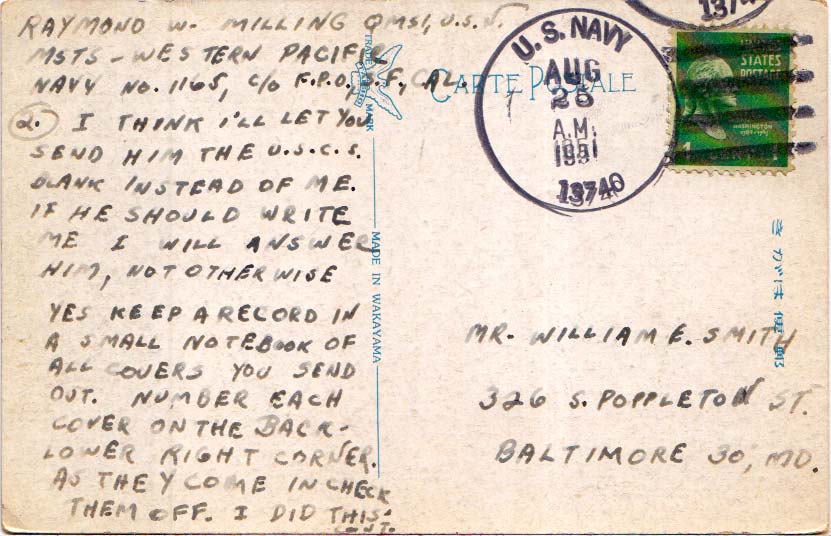 RAYMOND W. MILLING QMS1, U.S.N.
MSTS-WESTERN PACIFIC
NAVY NO. 1165, C/O F.P.O., S.F., CAL.
2. I THINK I'LL LET YOU
SEND HIM THE U.S.C.S.
BLANK INSTEAD OF ME.
IF HE SHOULD WRITE
ME I WILL ANSWER
HIM, NOT OTHERWISE
YES KEEP A RECORD IN
A SMALL NOTEBOOK OF
ALL COVERS YOU SEND
OUT. NUMBER EACH
COVER ON THE BACK-
LOWER RIGHT CORNER.
AS THEY COME IN CHECK
THEM OFF. I DID THIS
TRADE MARK
MADE IN WAKAYAMA
CARTE POSTALE
U.S. NAVY
AUG
28
A.M.
1951
13740
1374
UNITED
STATES
POSTAGE
WASHINGTON
1
きがは便郵
MR. WILLIAM E. SMITH
326 S. POPPLETON ST.
BALTIMORE 30, MD.